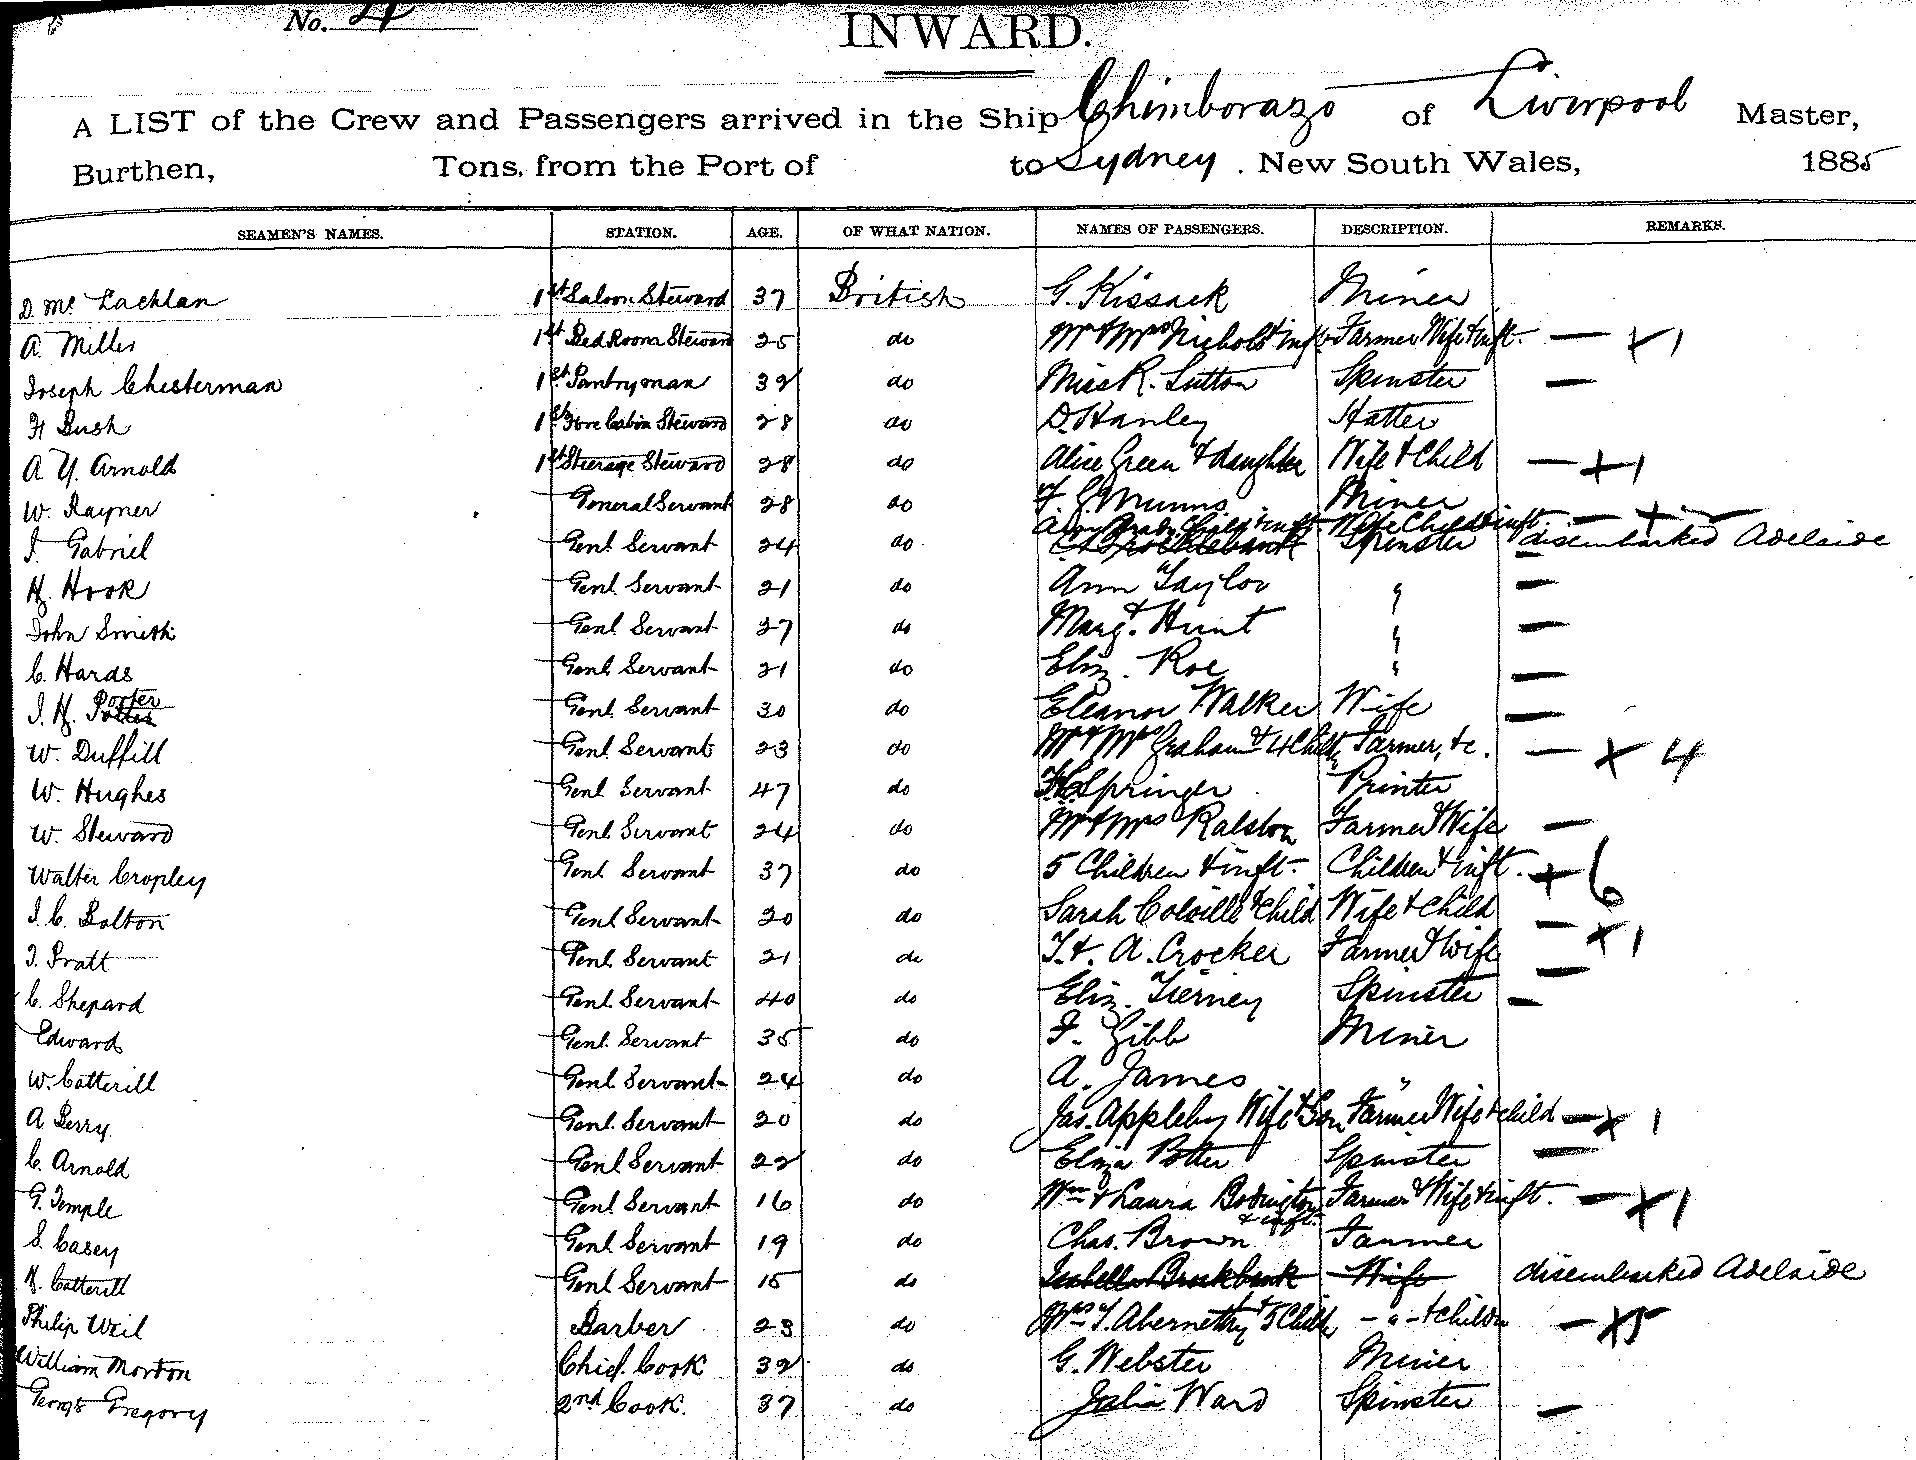 No. 4
INWARD.
A LIST of the Crew and Passengers arrived in the Ship Chimborazo of Liverpool Master,
Burthen, Tons, from the Port of to Sydney. New South Wales, 1885
SEAMEN'S NAMES. STATION. AGE. OF WHAT NATION. NAMES OF PASSENGERS. DESCRIPTION. REMARKS.
D. Mc Lachlan 1st Saloon Steward 37 British G. Kissack Miner
A. Miller 1st Bed Room Steward 25 do Mr & Mrs Nichols & inft Farmer Wife & inft. — + 1
Joseph Chesterman 1st Pantryman 32 do Miss R. Sutton Spinster —
H Bush 1st Fore Cabin Steward 28 do D. Hanley Hatter
A. Y. Arnold 1st Steerage Steward 28 do Alice Green & daughter Wife & Child — + 1
W. Rayner General Servant 28 do F. G. Munns Miner
Child & inft. Wife Child & inft. — +
J. Gabriel Genl Servant 24 do Spinster disembarked Adelaide
H. Hook Genl Servant 21 do Ann Taylor " —
John Smith Genl Servant 27 do Margt. Hunt " —
C. Hards Genl Servant 21 do Eliz. Roe " —
J. H. Porter Genl Servant 30 do Eleanor Walker Wife —
W. Duffill Genl Servant 23 do Mr & Mrs Graham & 4 Childn Farmer, &c. — + 4
W. Hughes Genl Servant 47 do Springer Printer
W. Steward Genl Servant 24 do Mr & Mrs Ralston Farmer & Wife —
Walter Cropley Genl Servant 37 do 5 Children & inft. Children & inft. + 6
J. C. Bolton Genl Servant 20 do Sarah Colville & Child Wife & Child — + 1
J. Pratt Genl Servant 21 do T. & A. Crocker Farmer & Wife —
C. Shepard Genl Servant 40 do Eliz. Tierney Spinster —
Edward Genl Servant 35 do F. Gibb Miner
W. Catterill Genl Servant 24 do A. James "
A Berry Genl Servant 20 do Jas. Appleby Wife & Son Farmer Wife & child — + 1
C. Arnold Genl Servant 22 do Eliza Potter Spinster —
G. Temple Genl Servant 16 do Wm & Laura Bodington & inft. Farmer & Wife & inft. — + 1
S. Casey Genl Servant 19 do Chas. Brown Farmer
H. Catterill Genl Servant 15 do Isabella Brockbank Wife disembarked Adelaide
Philip Weil Barber 23 do Mrs T. Abernethy & 5 Childn - " - & childn — + 5
William Morton Chief Cook 32 do G. Webster Miner
George Gregory 2nd Cook. 37 do Julia Ward Spinster —